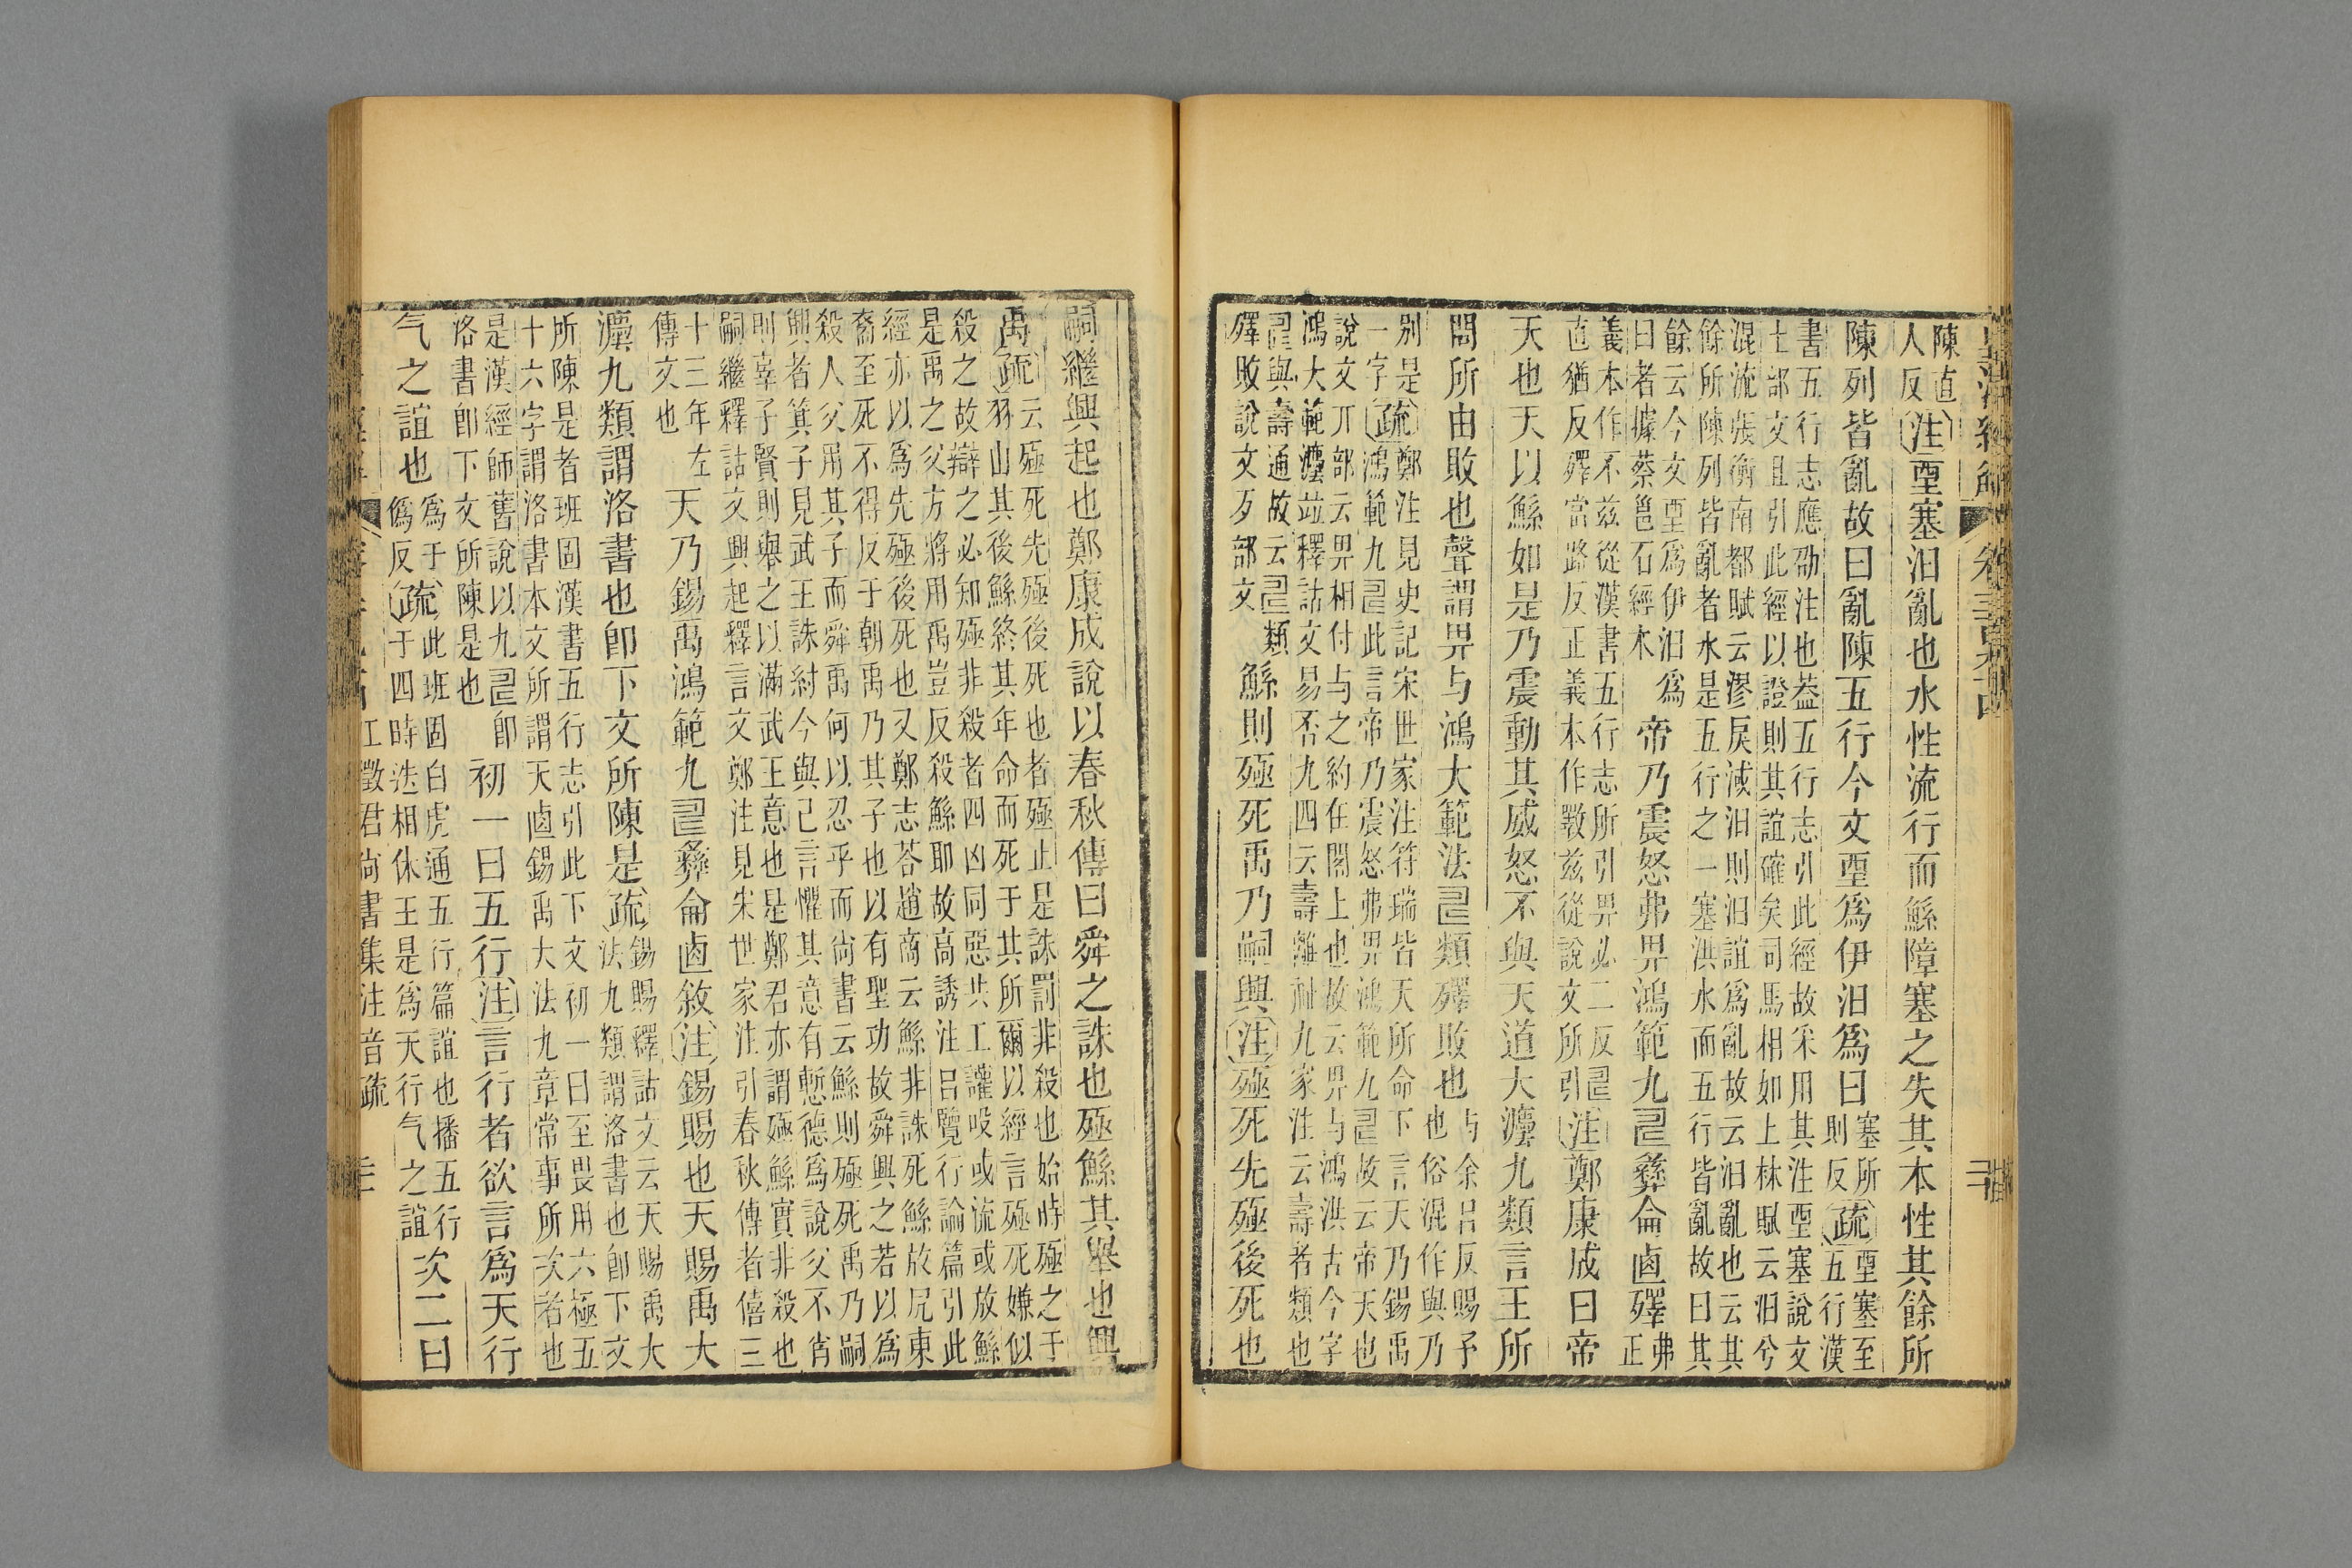 皇清經解
陳直人反注垔塞汩亂也水性流行而鯀障塞之失其本性其餘所
陳列皆亂故曰亂陳五行今文垔爲伊汩爲曰塞所則反疏垔塞至五行漢
書五行志應劭注也葢五行志引此經故采用其注垔塞說文
土部文且引此經以證則其誼確矣司馬相如上林賦云汩兮
混流張衡南都賦云漻戾淢汩則汩誼爲亂故云汩亂也云其
餘所陳列皆亂者水是五行之一塞洪水而五行皆亂故曰其
餘云今文垔爲伊汩爲曰者據蔡邕石經木帝乃震怒弗畀鴻範九𠃬彝侖逌殬弗正
義本作不茲從漢書五行志所引畀必二反𠃬直猶反殬當路反正義本作斁茲從說文所引注鄭康成曰帝
天也天以鯀如是乃震動其威怒不與天道大灋九類言王所
問所由敗也聲謂畀与鴻大範法𠃬類殬敗也与余呂反賜予也俗混作與乃
别是一字疏鄭注見史記宋世家注符瑞皆天所命下言天乃錫禹鴻範九𠃬此言帝乃震怒弗畀鴻範九𠃬故云帝天也
說文丌部云畀相付与之約在閣上也故云畀与鴻洪古今字
鴻大範灋竝釋詁文易否九四云壽離祉九家注云壽者類也
𠃬與壽通故云𠃬類殬敗說文歹部文鯀則殛死禹乃嗣興注殛死先殛後死也
嗣繼興起也鄭康成說以春秋傳曰舜之誅也殛鯀其舉也興
禹疏云殛死先殛後死也者殛止是誅罰非殺也始時殛之于羽山其後鯀終其年命而死于其所爾以經言殛死嫌似
殺之故辯之必知殛非殺者四凶同惡共工讙吺或流或放鯀
是禹之父方將用禹豈反殺鯀耶故高誘注呂覽行論篇引此
經亦以爲先殛後死也又鄭志荅趙商云鯀非誅死鯀放尻東
裔至死不得反于朝禹乃其子也以有聖功故舜興之若以爲
殺人父用其子而舜禹何以忍乎而尙書云鯀則殛死禹乃嗣
興者箕子見武王誅紂今與己言懼其意有慙德爲說父不肖
則辠子賢則舉之以滿武王意也是鄭君亦謂殛鯀實非殺也
嗣繼釋詁文興起釋言文鄭注見宋世家注引春秋傳者僖三
十三年左傳文也天乃錫禹鴻範九𠃬彝侖逌敘注錫賜也天賜禹大
灋九類謂洛書也卽下文所陳是疏錫賜釋詁文云天賜禹大法九類謂洛書也卽下文
所陳是者班固漢書五行志引此下文初一曰至畏用六極五
十六字謂洛書本文所謂天逌錫禹大法九章常事所次者也
是漢經師舊說以九𠃬卽洛書卽下文所陳是也初一曰五行注言行者欲言爲天行
气之誼也爲于僞反疏此班固白虎通五行篇誼也播五行于四時迭相休王是爲天行气之誼次二曰
江徵君尙書集注音疏